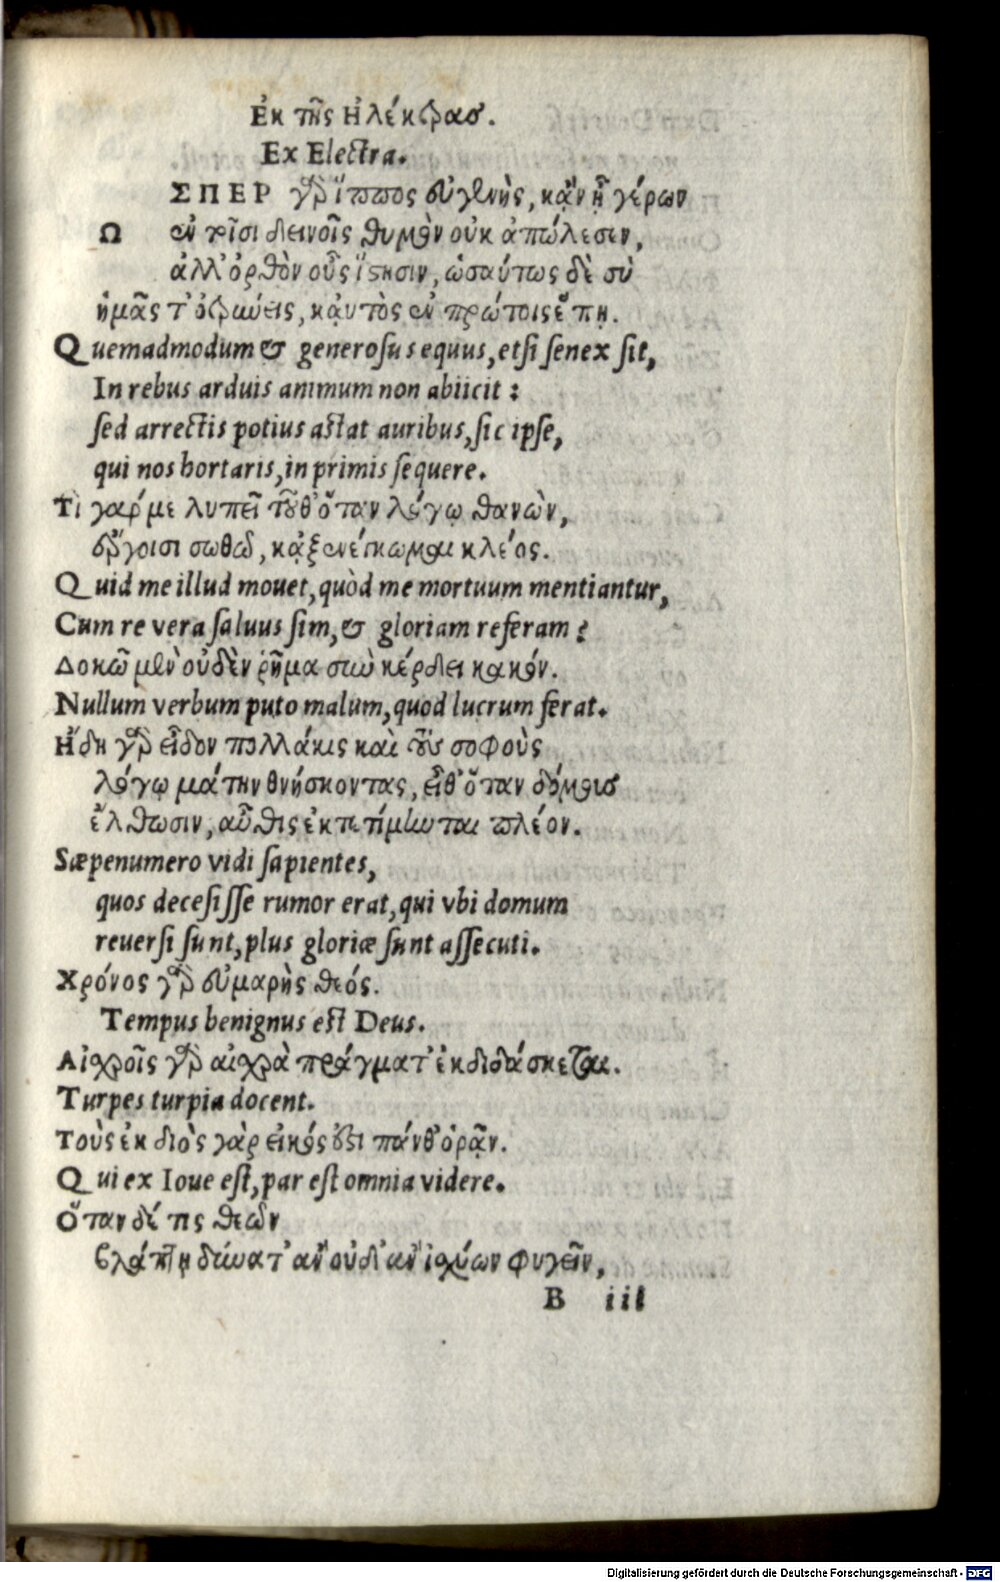 Ἐκ τῆς Ἠλέκτρας.
Ex Electra.
ΣΠΕΡ γὰρ ἵππος εὐγενὴς, κἂν ᾖ γέρων
Ω ἐν τοῖσι δεινοῖς θυμὸν οὐκ ἀπώλεσεν,
ἀλλ' ὀρθὸν οὖς ἵστησιν, ὡσαύτως δὲ σὺ
ἡμᾶς τ' ὀτρύνεις, καὐτὸς ἐν πρώτοις ἕπῃ.
Quemadmodum & generosus equus, etsi senex sit,
In rebus arduis animum non abiicit:
sed arrectis potius astat auribus, sic ipse,
qui nos hortaris, in primis sequere.
Τί γάρ με λυπεῖ τοῦθ' ὅταν λόγῳ θανὼν,
ἔργοισι σωθῶ, κἀξενέγκωμαι κλέος.
Quid me illud mouet, quòd me mortuum mentiantur,
Cum re vera saluus sim, & gloriam referam?
Δοκῶ μὲν οὐδὲν ῥῆμα σὺν κέρδει κακόν.
Nullum verbum puto malum, quod lucrum ferat.
Ἤδη γὰρ εἶδον πολλάκις καὶ τοὺς σοφοὺς
λόγῳ μάτην θνήσκοντας, εἶθ' ὅταν δόμοις
ἔλθωσιν, αὖθις ἐκτετίμηνται πλέον.
Sæpenumero vidi sapientes,
quos decesisse rumor erat, qui vbi domum
reuersi sunt, plus gloriæ sunt assecuti.
Χρόνος γὰρ εὐμαρὴς θεός.
Tempus benignus est Deus.
Αἰσχροῖς γὰρ αἰσχρὰ πράγματ' ἐκδιδάσκεται.
Turpes turpia docent.
Τοὺς ἐκ διὸς γὰρ εἰκός ἐστι πάνθ' ὁρᾷν.
Qui ex Ioue est, par est omnia videre.
Ὅταν δέ τις θεῶν
βλάπτῃ δύναιτ' ἂν οὐδ' ἂν ἰσχύων φυγεῖν,
B iii
Digitalisierung gefördert durch die Deutsche Forschungsgemeinschaft - DFG